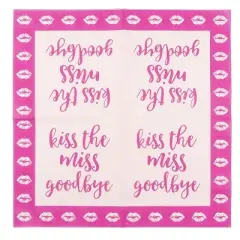 kiss the
miss
goodbye
kiss the
miss
goodbye
kiss the
miss
goodbye
kiss the
miss
goodbye